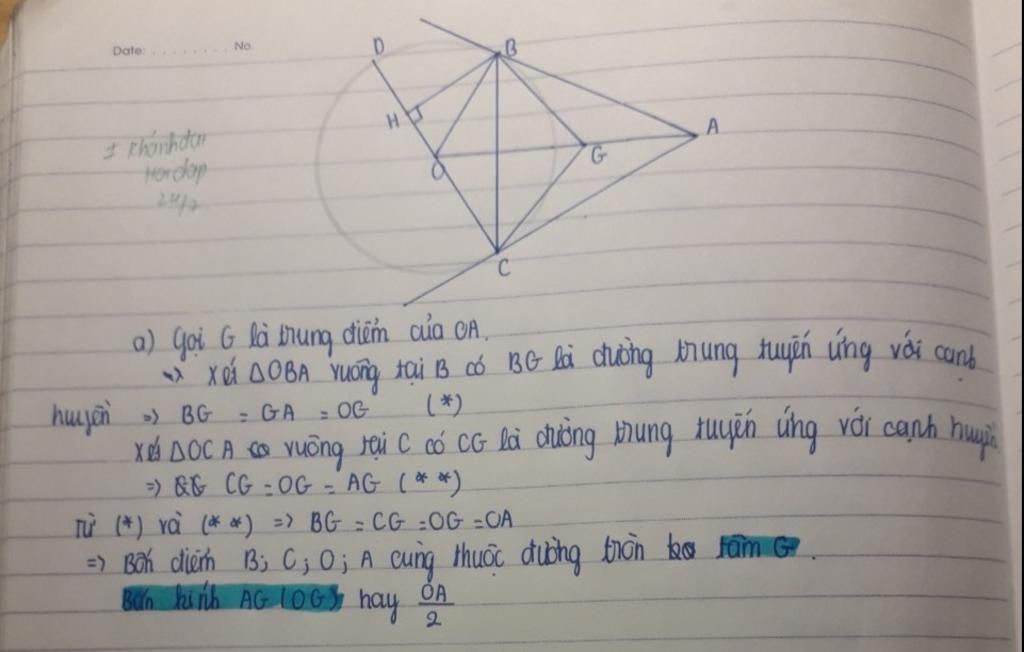 Date: ........ No.
D
B
H
A
G
O
C
a) Gọi G là trung điểm của OA.
~> Xét ΔOBA vuông tại B có BG là đường trung tuyến ứng với cạnh
huyền => BG = GA = OG (*)
Xét ΔOCA vuông tại C có CG là đường trung tuyến ứng với cạnh huyền
=> CG = OG = AG (**)
Từ (*) và (**) => BG = CG = OG = OA
=> Bốn điểm B; C; O; A cùng thuộc đường tròn tâm G.
Bán kính AG (OG) hay OA/2